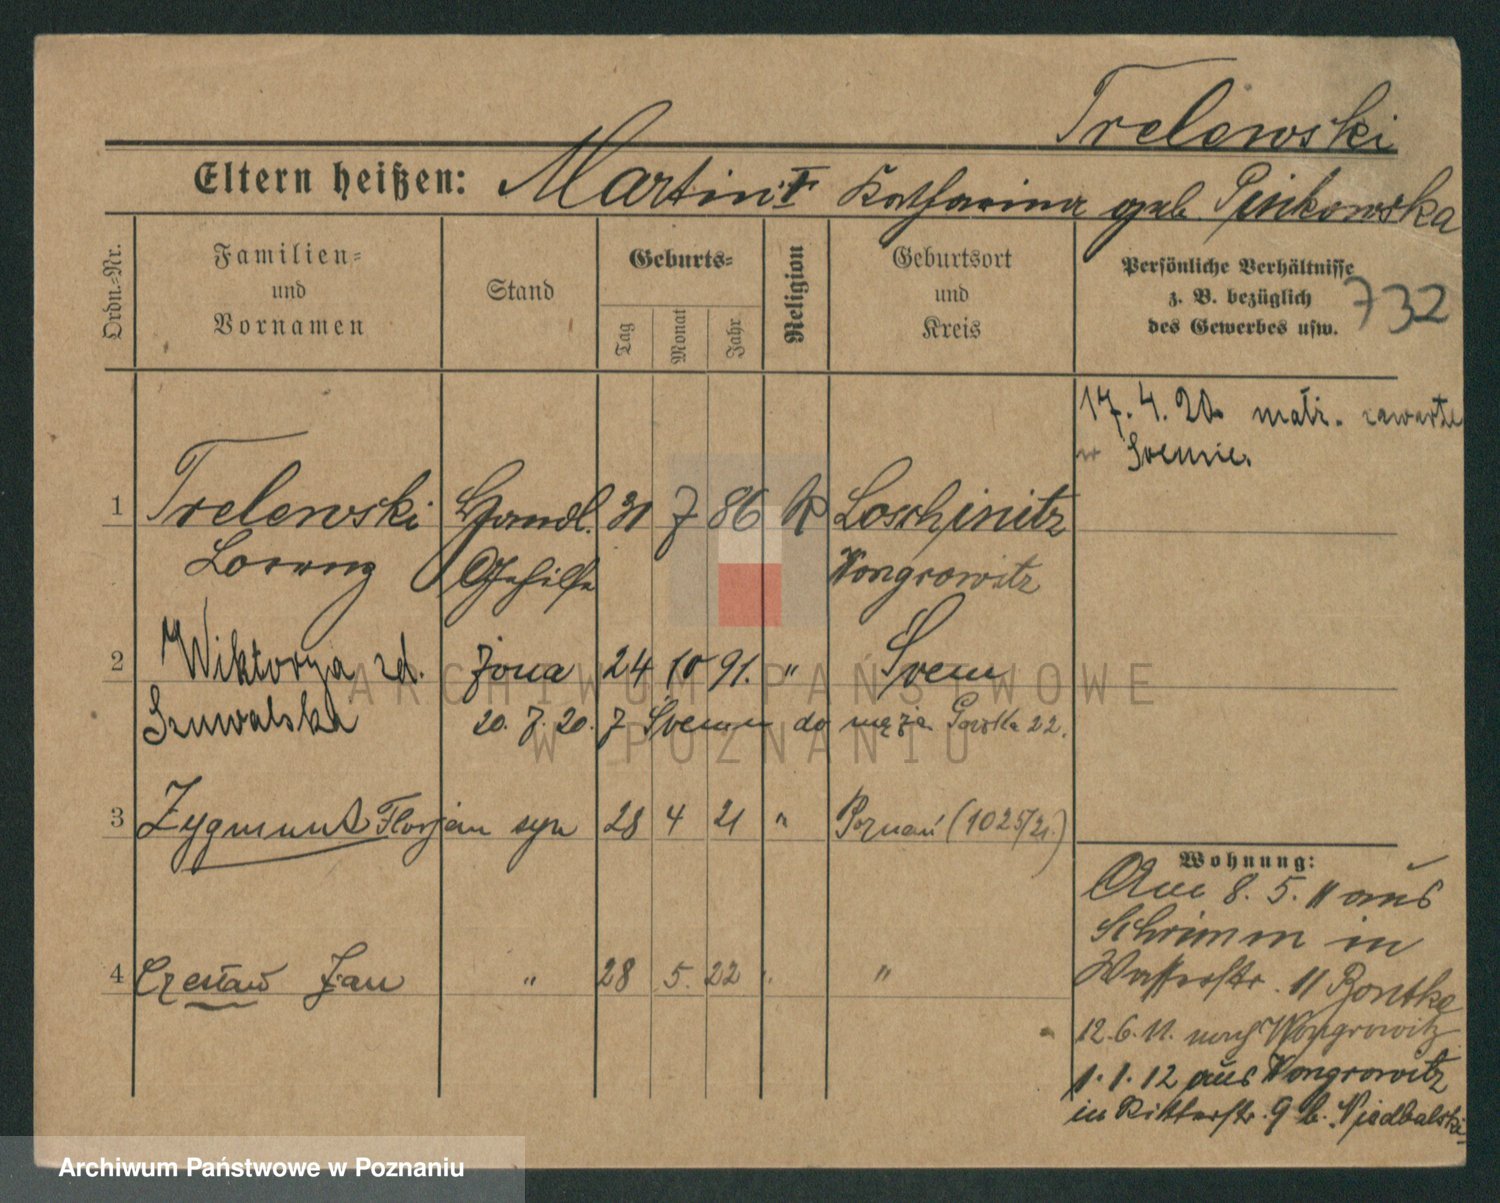 Trelewski
Eltern heißen: Martin u. Katharina geb. Pinkowska
Ordn.-Nr.
Familien- und Vornamen
Stand
Geburts-
Tag
Monat
Jahr
Religion
Geburtsort und Kreis
Persönliche Verhältnisse
z. B. bezüglich
des Gewerbes usw.
732
17. 4. 20. małż. zawarte
w Śremie.
1 Trelewski Handl. 31 7 86 K Loschinitz
Lorenz Gehilfe Wongrowitz
2 Wiktorya zd. żona 24 10 91. " Śrem
Szuwalska 20. 7. 20. z Śremu do męża 22.
3 Zygmunt Florjan syn 28 4 21 " Poznań (1025/21.)
4 Czesław Jan " 28 5. 22 " "
Wohnung:
Am 8. 5. 11 aus
Schrimm in
Wasserstr. 11
12. 6. 11. nach Wongrowitz
1. 1. 12 aus Wongrowitz
in Ritterstr. 9 b. Niedbalski
ARCHIWUM PAŃSTWOWE
W POZNANIU
Archiwum Państwowe w Poznaniu